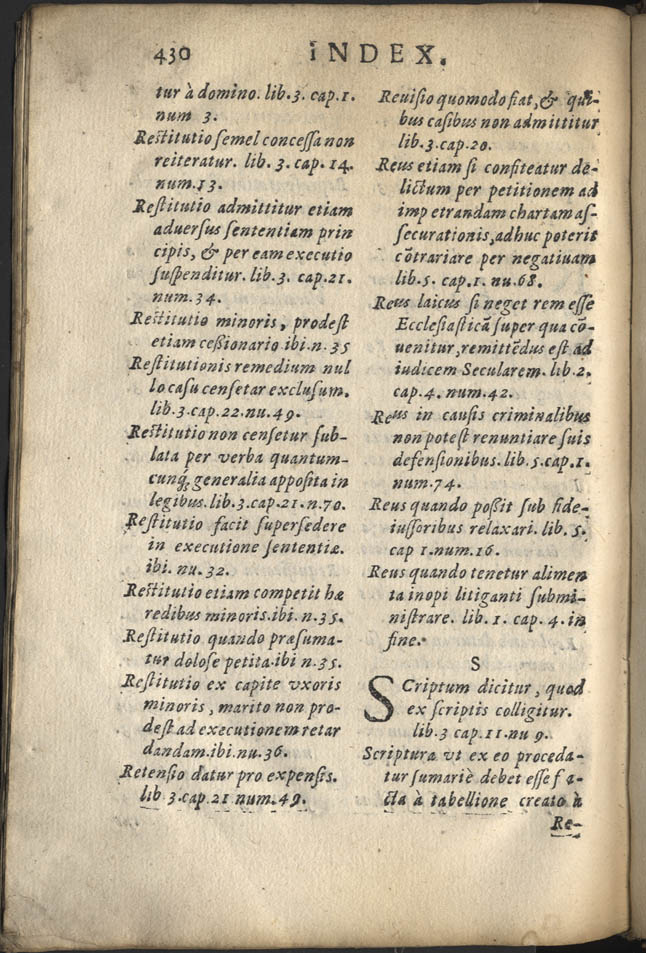 430 INDEX.
tur à domino. lib. 3. cap. 1.
num 3.
Reſtitutio ſemel conceſſa non
reiteratur. lib. 3. cap. 14.
num. 13.
Reſtitutio admittitur etiam
aduerſus ſententiam prin
cipis, & per eam executio
ſuſpenditur. lib. 3. cap. 21.
num. 34.
Reſtitutio minoris, prodeſt
etiam ceßionario ibi. n. 35
Reſtitutionis remedium nul
lo caſu cenſetar excluſum.
lib. 3. cap. 22. nu. 49.
Reſtitutio non cenſetur ſub-
lata per verba quantum-
cunq́; generalia appoſita in
legibus. lib. 3. cap. 21. n. 70.
Reſtitutio facit ſuperſedere
in executione ſententiæ.
ibi. nu. 32.
Reſtitutio etiam competit hæ
redibus minoris. ibi. n. 35.
Reſtitutio quando præſuma-
tur doloſe petita. ibi n. 35.
Reſtitutio ex capite vxoris
minoris, marito non pro-
deſt ad executionem retar
dandam. ibi. nu. 36.
Retenſio datur pro expenſis.
lib 3. cap. 21 num. 49.
Reuiſio quomodo fiat, & qui-
bus caſibus non admittitur
lib. 3. cap. 20.
Reus etiam ſi confiteatur de-
lictum per petitionem ad
imp etrandam chartam aſ-
ſecurationis, adhuc poterit
cõtrariare per negatiuam
lib. 5. cap. 1. nu. 68.
Reus laicus ſi neget rem eſſe
Eccleſiaſticã ſuper qua cõ-
uenitur, remittẽdus eſt ad
iudicem Secularem. lib. 2.
cap. 4. num. 42.
Reus in cauſis criminalibus
non poteſt renuntiare ſuis
defenſionibus. lib. 5. cap. 1.
num. 74.
Reus quando poßit ſub fide-
iuſſoribus relaxari. lib. 5.
cap 1. num. 16.
Reus quando tenetur alimen
ta inopi litiganti ſubmi-
niſtrare. lib. 1. cap. 4. in
fine.
S
SCriptum dicitur, quod
ex ſcriptis colligitur.
lib. 3 cap. 11. nu 9.
Scriptura vt ex eo proceda-
tur ſumariè debet eſſe fa-
cta à tabellione creato à
Re-